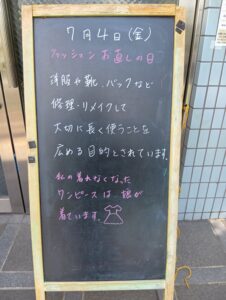 7月4日(金)
ファッションお直しの日
洋服や靴、バックなど
修理・リメイクして
大切に長く使うことを
広める目的とされています。
私の着れなくなった
ワンピースは 娘が
着ています。